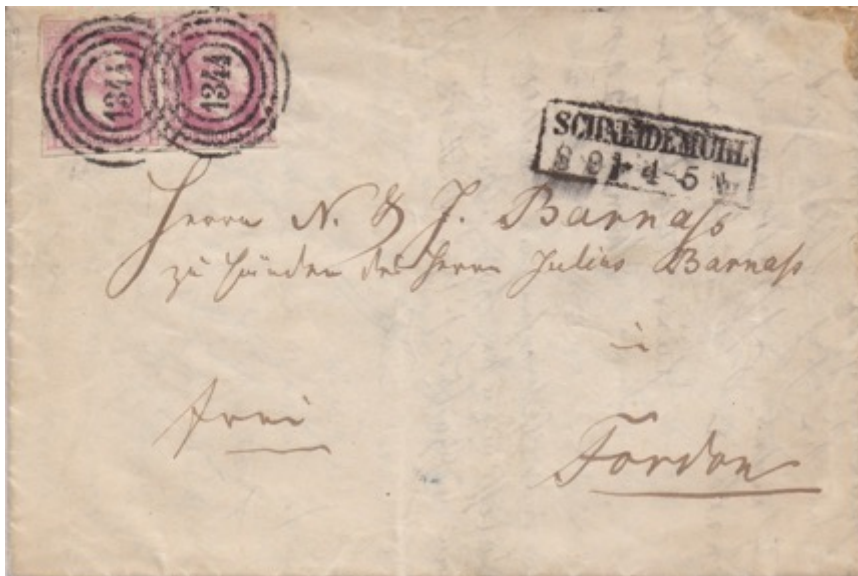 1344 1344
SCHNEIDEMÜHL
8 9 * 4-5
Herrn N. & J. Barnaß
zu Händen des Herrn Julius Barnaß
in
frei
Fordon